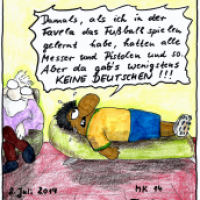 Damals, als ich in der
Favela das Fußball spielen
gelernt habe, hatten alle
Messer und Pistolen und so.
Aber da gab's wenigstens
KEINE DEUTSCHEN !!!
2. Juli. 2014
MK 14